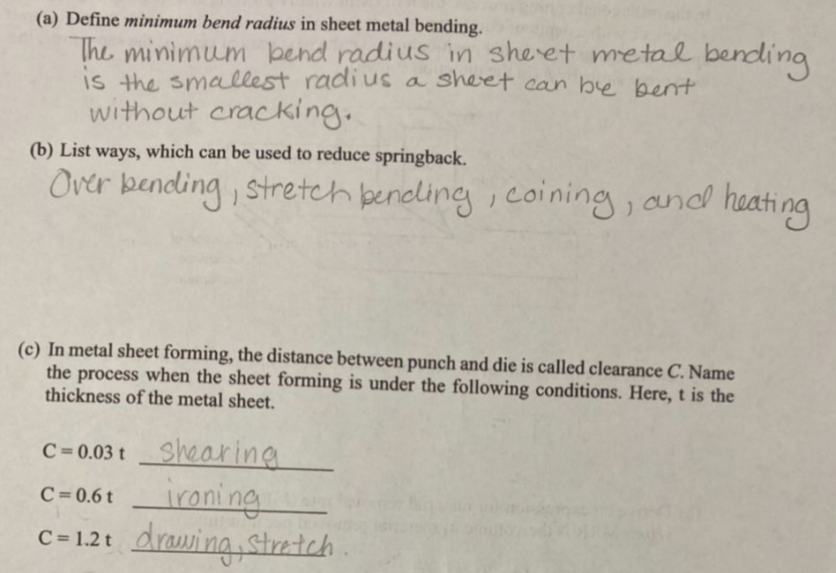 (a) Define minimum bend radius in sheet metal bending.
The minimum bend radius in sheet metal bending
is the smallest radius a sheet can be bent
without cracking.
(b) List ways, which can be used to reduce springback.
Over bending, stretch bending, coining, and heating
(c) In metal sheet forming, the distance between punch and die is called clearance C. Name
the process when the sheet forming is under the following conditions. Here, t is the
thickness of the metal sheet.
C = 0.03 t shearing
C = 0.6 t ironing
C = 1.2 t drawing, stretch.